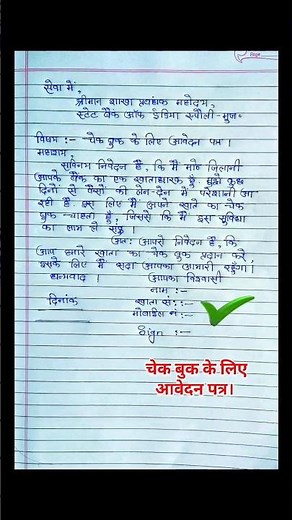 Page
सेवा में,
श्रीमान शाखा प्रबंधक महोदय,
स्टेट बैंक ऑफ इंडिया रुपौली-मुज॰
विषय :- चेक बुक के लिए आवेदन पत्र।
महाशय,
सविनय निवेदन है, कि मैं मो॰ जिलानी
आपके बैंक का एक खाताधारक हूँ। मुझे कुछ
दिनों से पैसों की लेन-देन में परेशानी आ
रही है। इस लिए मैं अपने खाते का चेक
बुक चाहता हूँ, जिससे कि मैं इस सुविधा
का लाभ ले सकूँ।
अतः आपसे निवेदन है, कि
आप हमारे खाता का चेक बुक प्रदान करें
इसके लिए मैं सदा आपका आभारी रहूँगा।
धन्यवाद। आपका विश्वासी
नाम :-
दिनांक खाता सं॰:-
मोबाईल नं:-
Sign :-
चेक बुक के लिए
आवेदन पत्र।